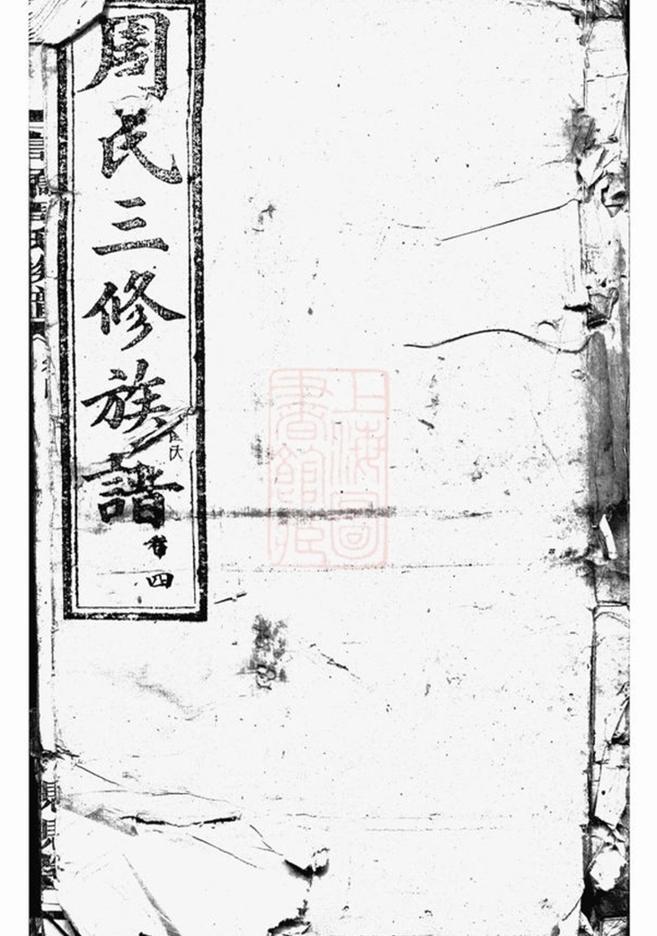 周氏三修族譜
卷四
上海圖
書館藏